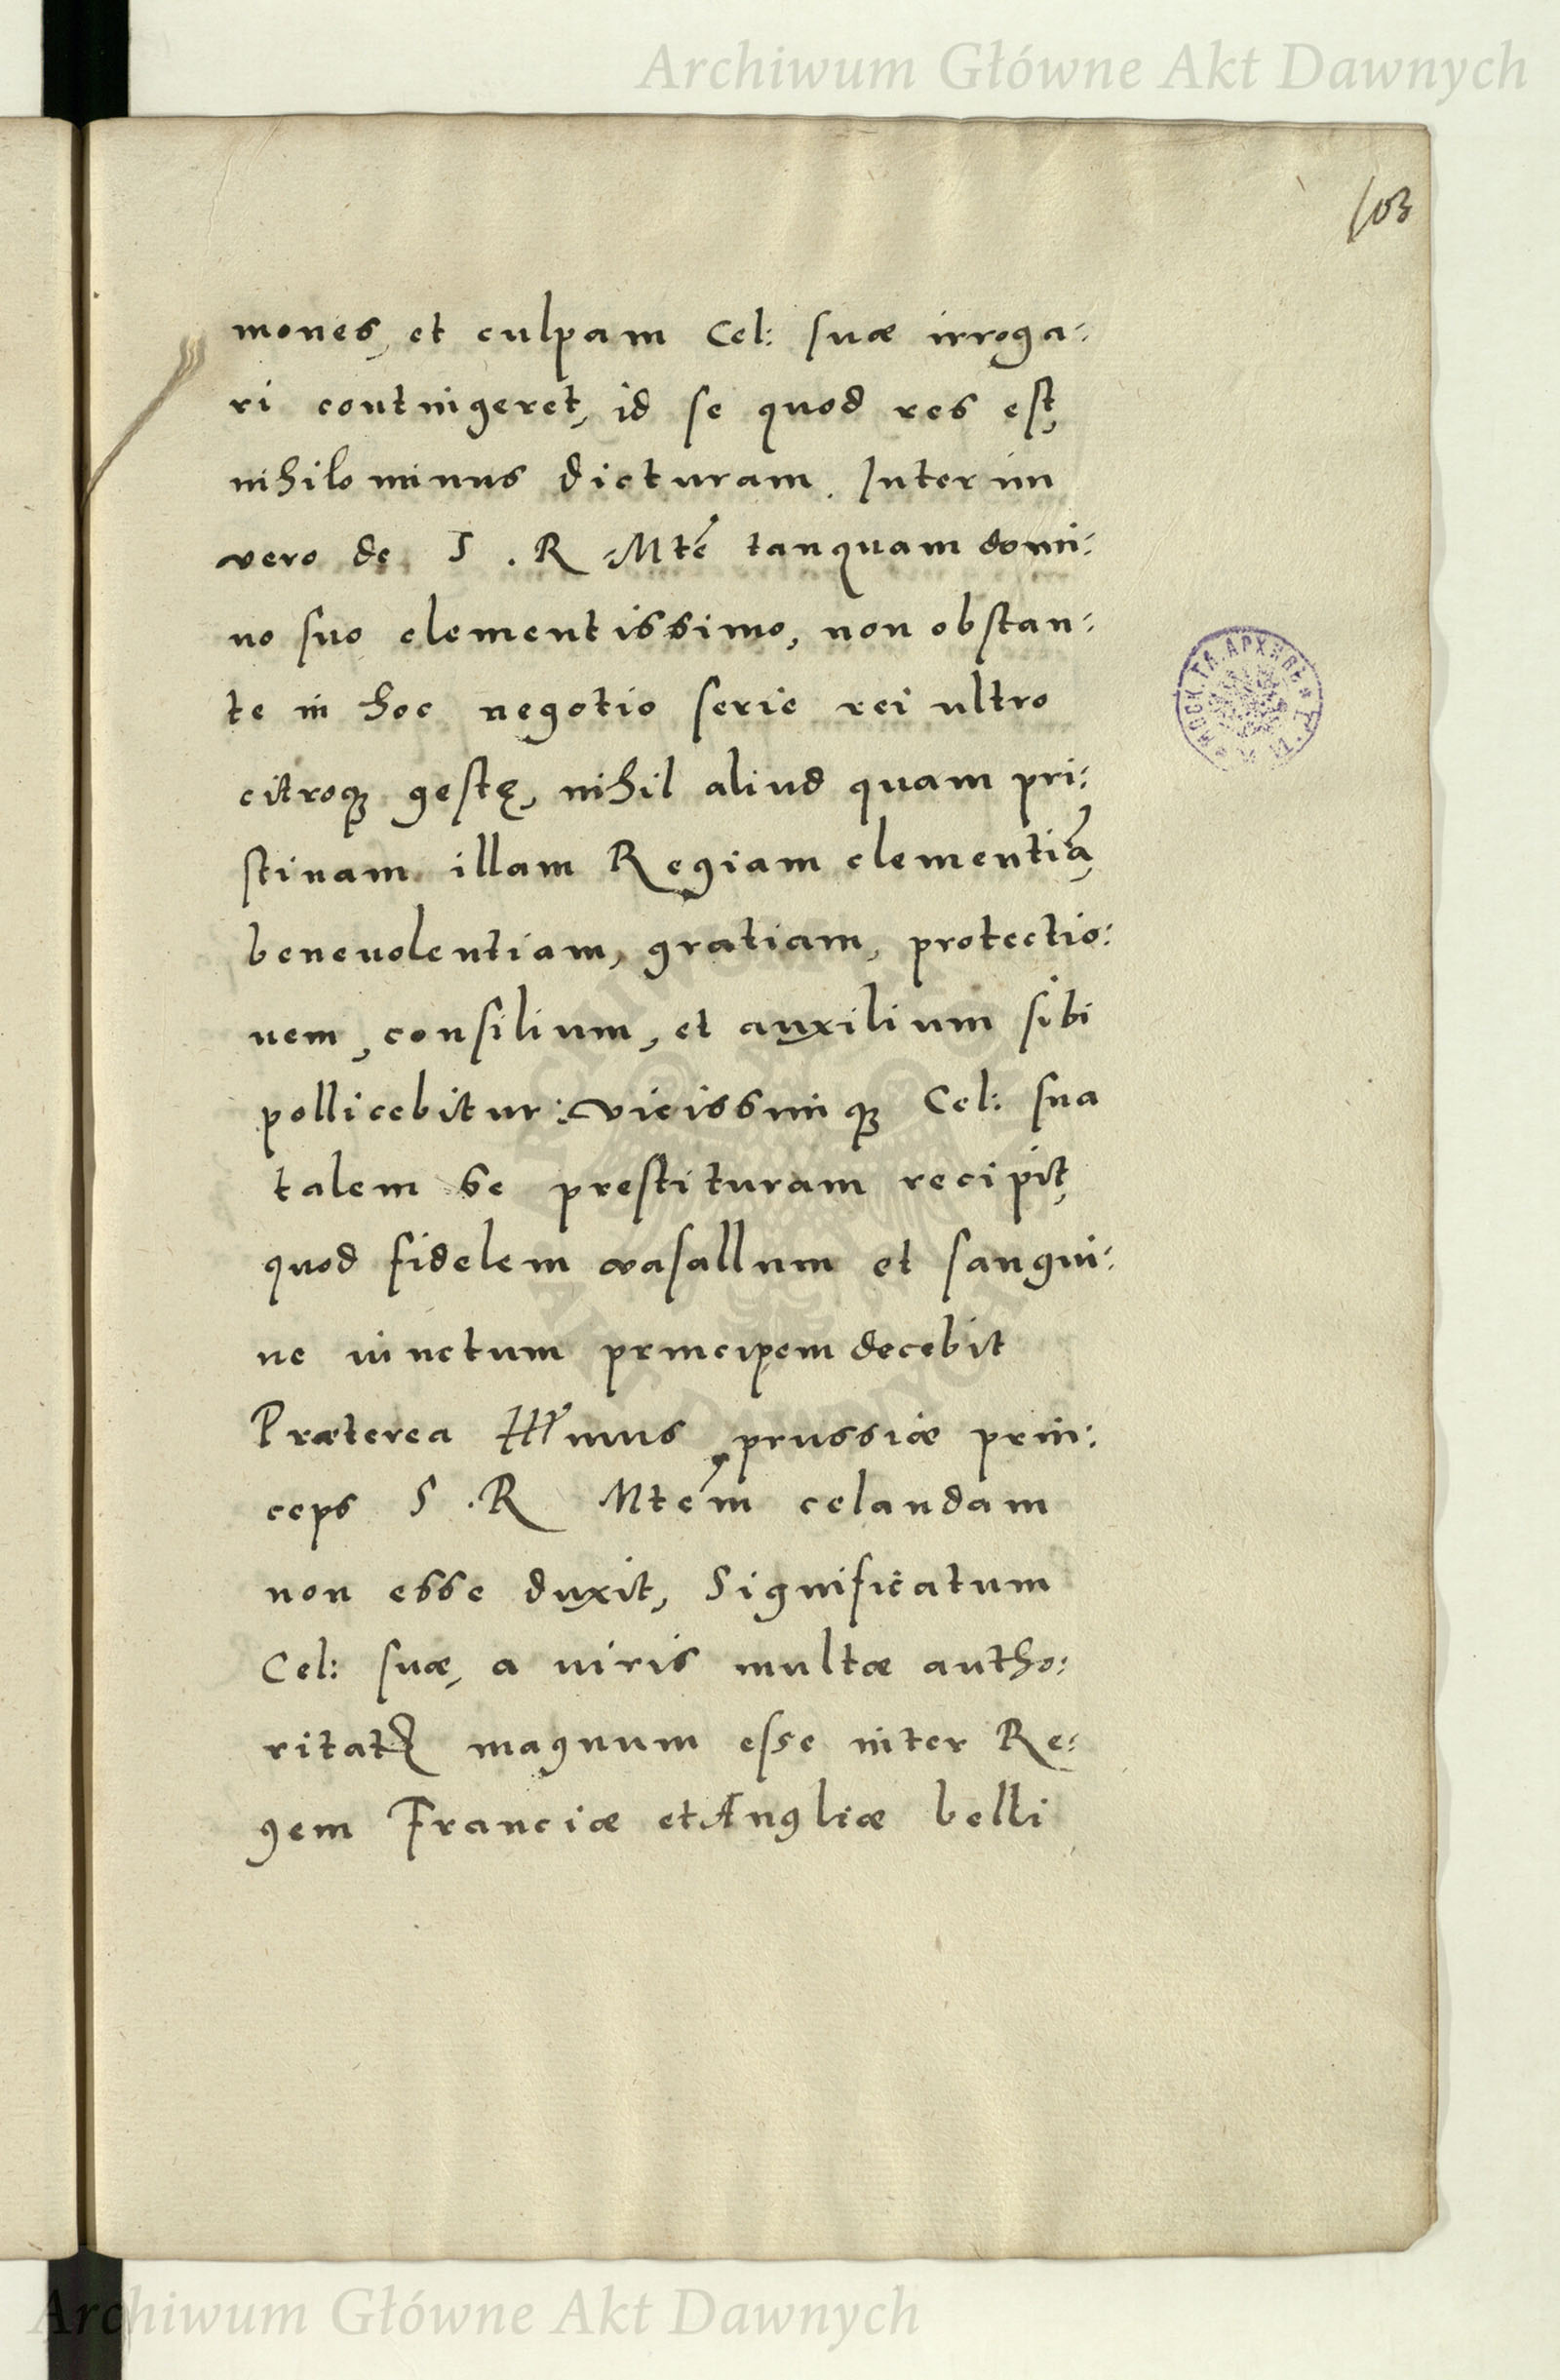 Archiwum Główne Akt Dawnych
103
mones, et culpam Cel: suæ irroga:
ri contingeret, id se quod res est,
nihilominus dicturam. Interim
vero de S . R Mte tanquam domi:
no suo clementissimo, non obstan:
te in hoc negotio serie rei ultro
citroqȝ gestę, nihil aliud quam pri:
stinam illam Regiam clementiã,
beneuolentiam, gratiam, protectio:
nem, consilium, et auxilium sibi
pollicebitur: vicissimqȝ Cel: sua
talem se prestituram recipit,
quod fidelem vasallum et sangui:
ne iunctum principem decebit
Præterea Illr̃imus prussiæ prin:
ceps S . R Mtem celandam
non esse duxit, Significatum
Cel: suæ, a uiris multæ autho:
ritatꝭ magnum esse inter Re:
gem Franciæ et Angliæ belli
Archiwum Główne Akt Dawnych